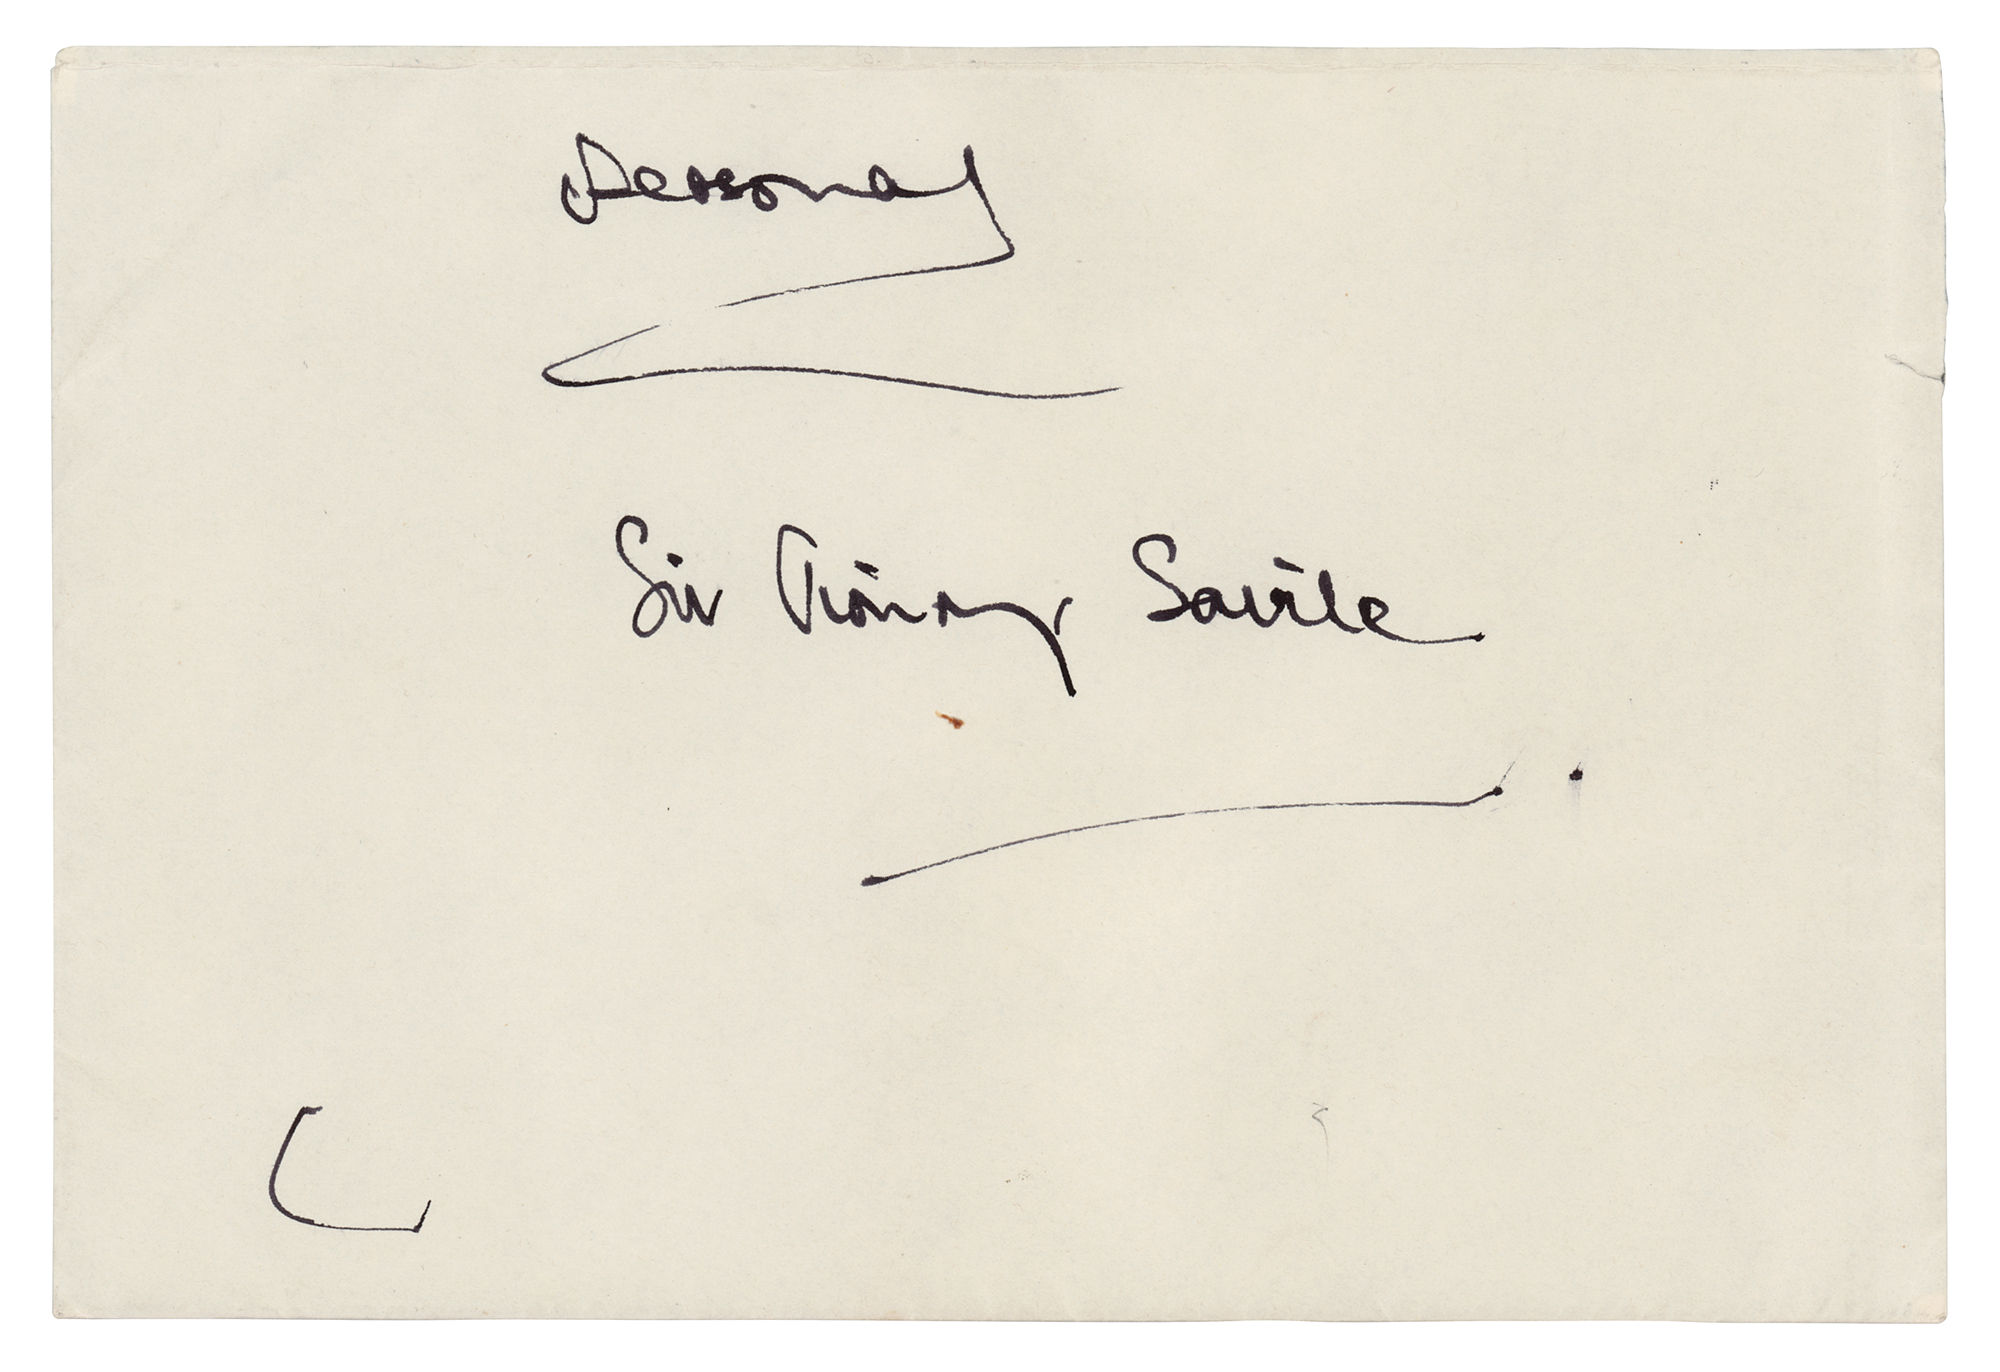 Personal
Sir Jimmy Savile
C